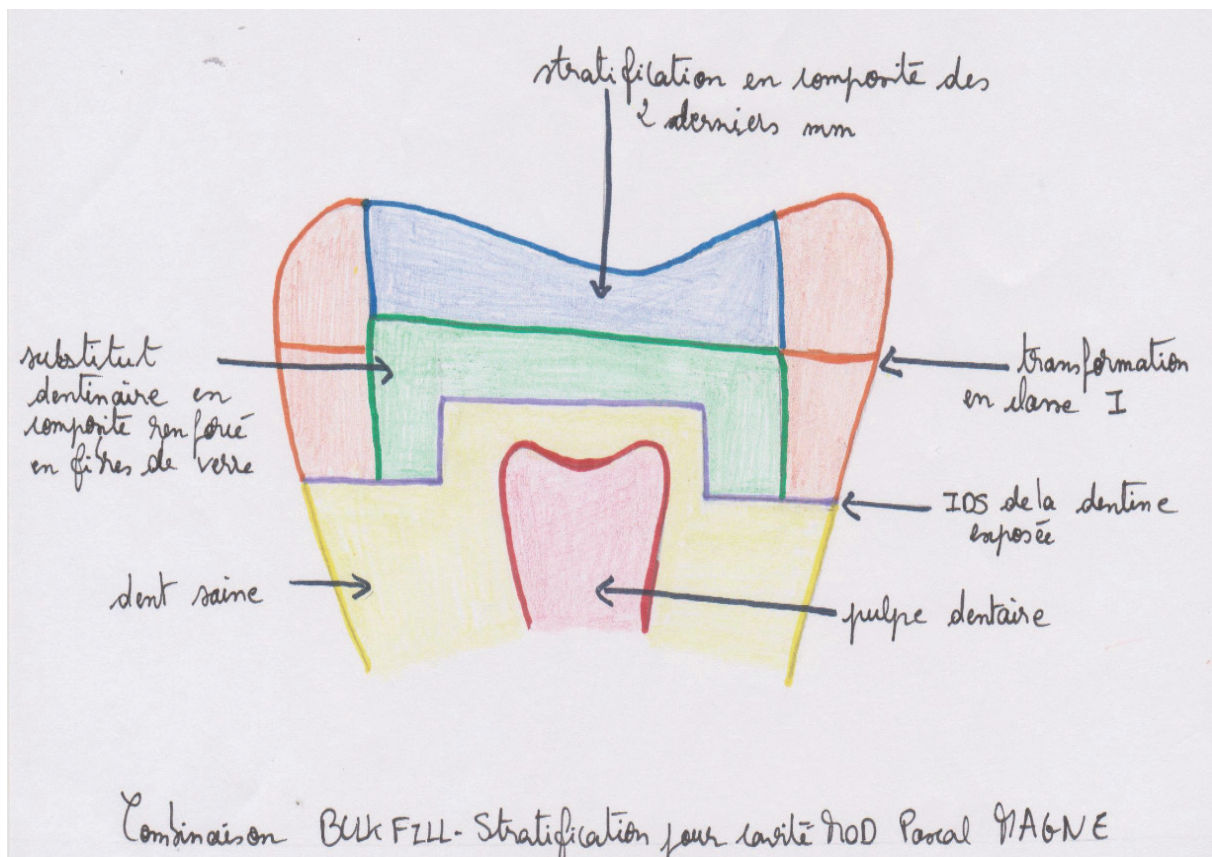 stratification en composite des
2 derniers mm
substitut
dentinaire en
composite renforcé
en fibres de verre
transformation
en classe I
IDS de la dentine
exposée
dent saine
pulpe dentaire
Combinaison BULK FILL - Stratification pour cavité MOD Pascal MAGNE